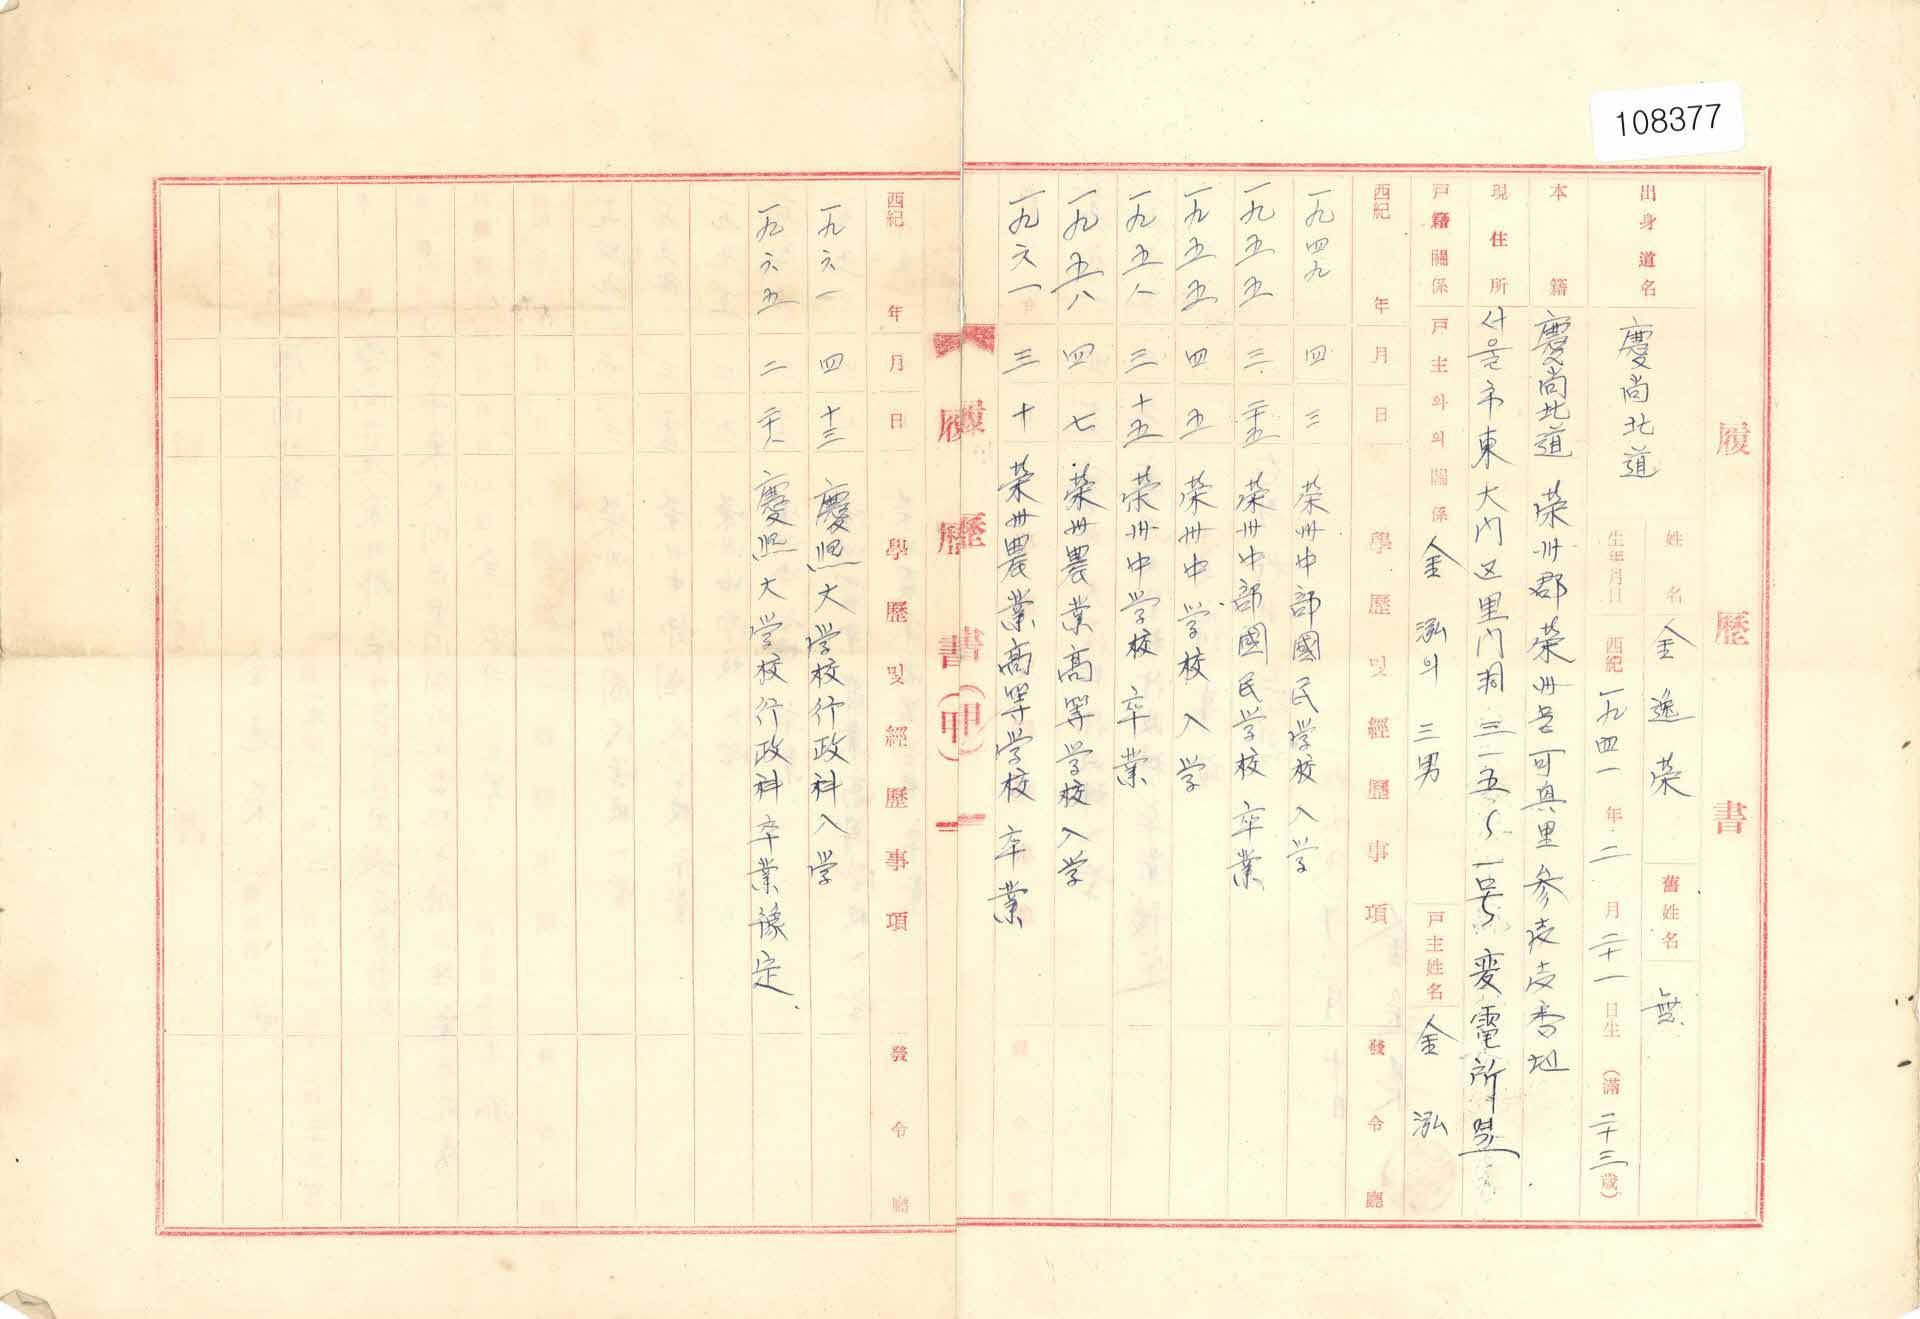 108377
履歷書
出身道名 慶尚北道 姓名 金逸榮 舊姓名 無
生年月日 西紀 一九四一年 二月 二十一日生 (滿 二十三歲)
本籍 慶尚北道 榮州郡 榮州邑 可興里
現住所 서울市 東大门区 里门洞 三一五 一号 変電所
戶籍關係 戶主와의關係 金泓의 三男 戶主姓名 金泓
西紀 年 月 日 學歷 및 經歷事項 發令廳
一九四九 四 三 榮州中部國民学校 入学
一九五五 三 二十五 榮州中部國民学校 卒業
一九五五 四 五 榮州中学校 入学
一九五八 三 十五 榮州中学校 卒業
一九五八 四 七 榮州農業高等学校 入学
一九六一 三 十 榮州農業高等学校 卒業
履歷書(甲)一
西紀 年 月 日 學歷 및 經歷事項 發令廳
一九六一 四 十三 慶熙大学校 行政科 入学
一九六五 二 二十八 慶熙大学校 行政科 卒業豫定.